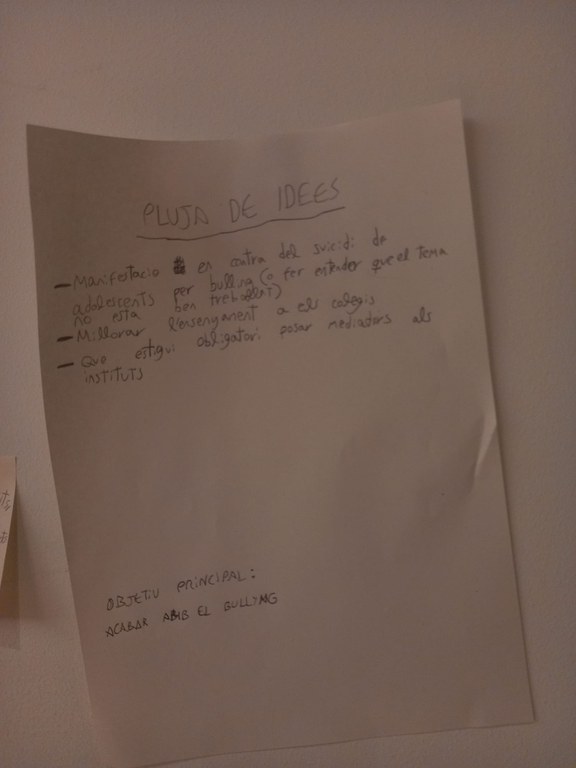 PLUJA DE IDEES
- Manifestacio en contra del suicidi de
adolescents per bulling (o fer entender que el tema
no esta ben treballat)
- Millorar l'ensenyament a els colegis
- Que estigui obligatori posar mediadors als
instituts
OBJETIU PRINCIPAL:
ACABAR AMB EL BULLYNG